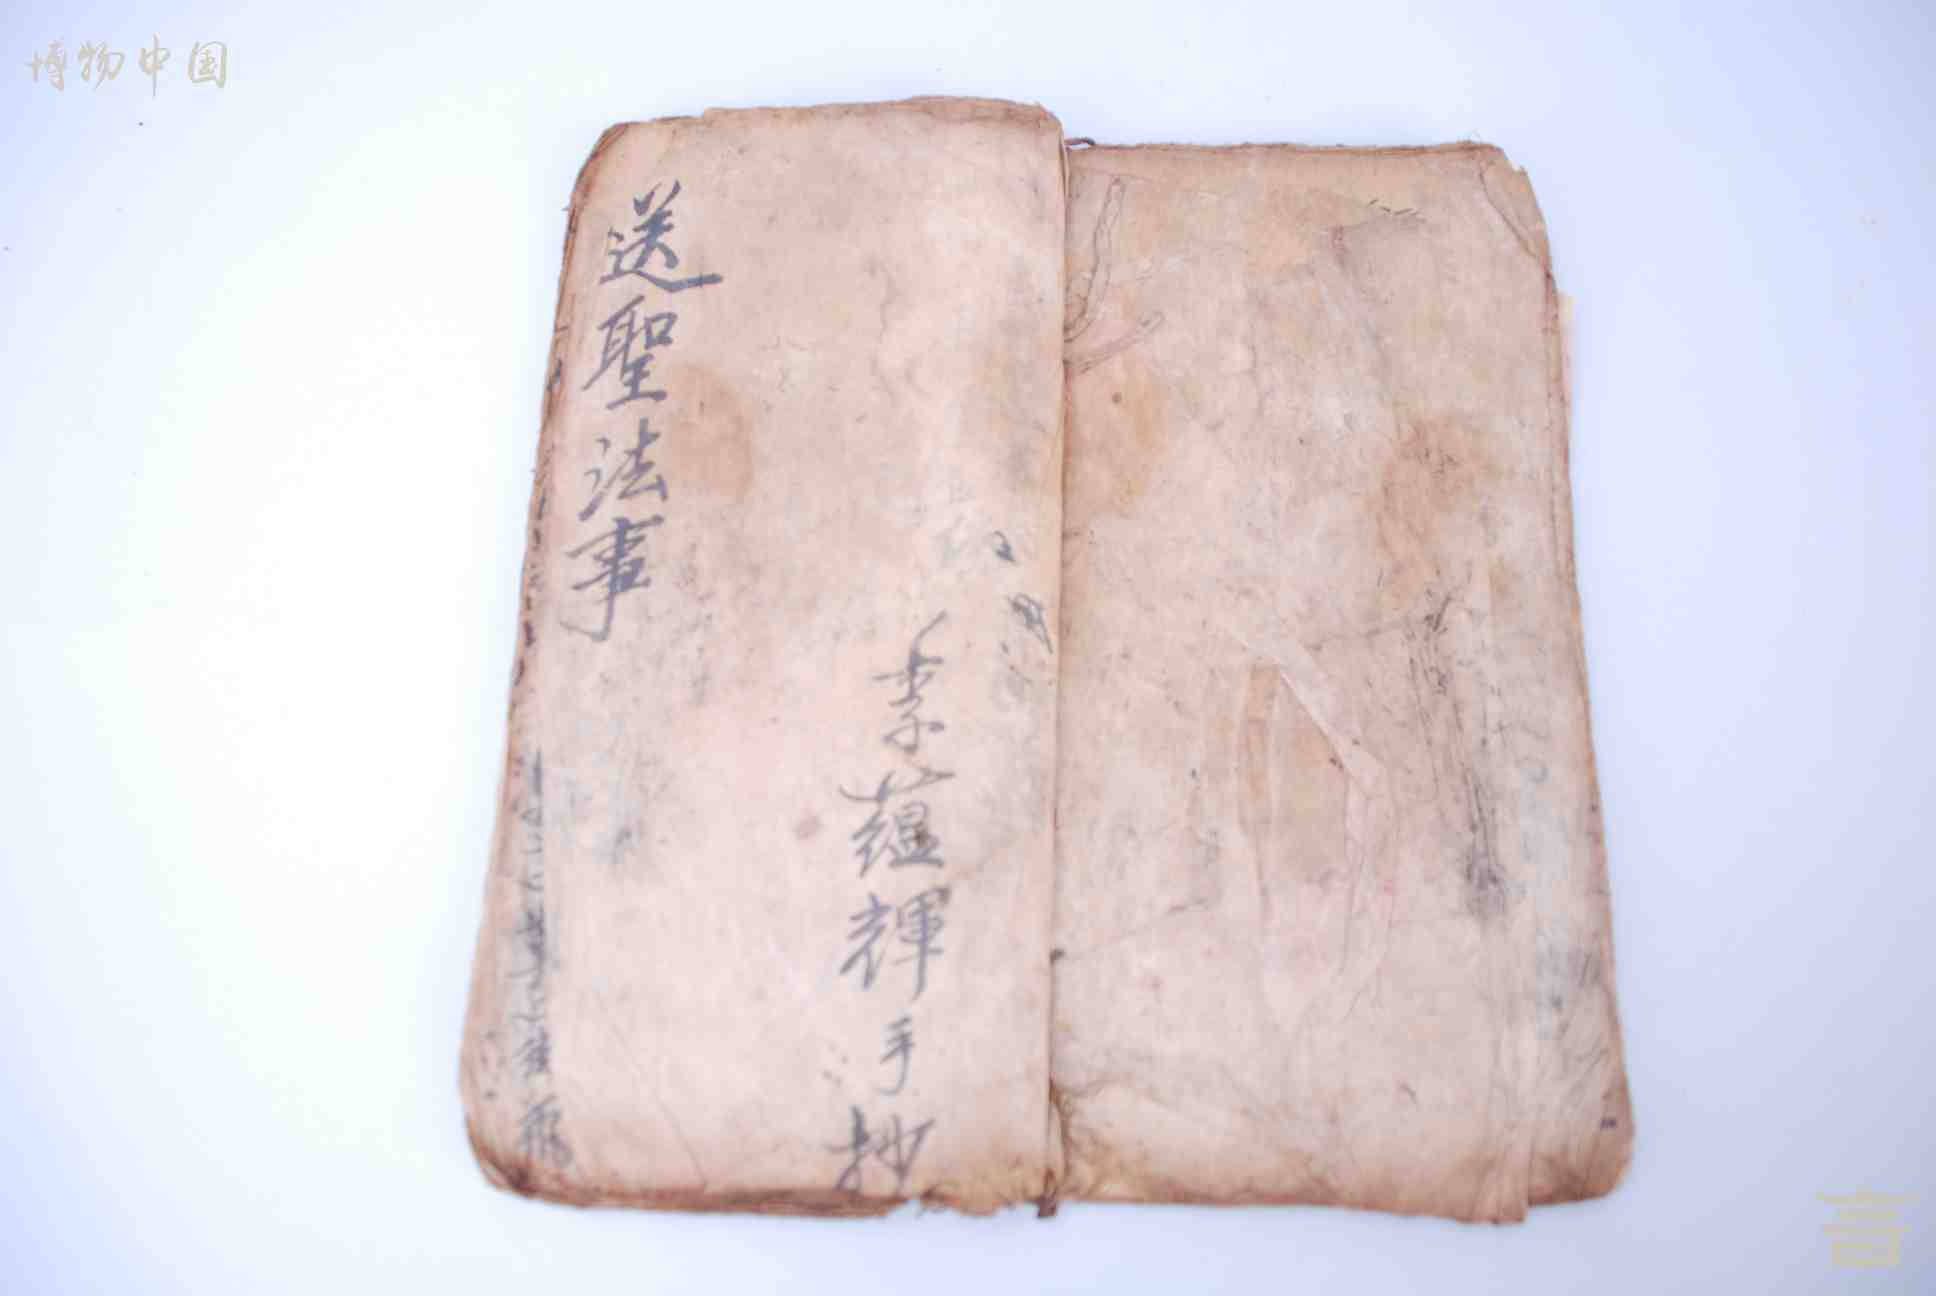 博物中国
送聖法事
李蘊輝手抄
言